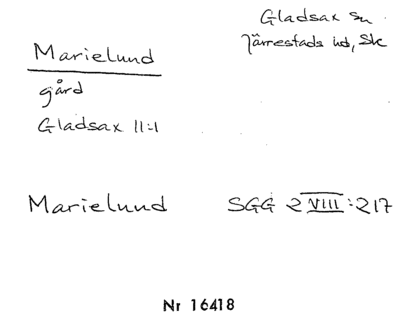 Marielund
Gladsax sn
Järrestads hd, Sk
gård
Gladsax 11:1
Marielund
SGG 2 VIII:217
Nr 16418